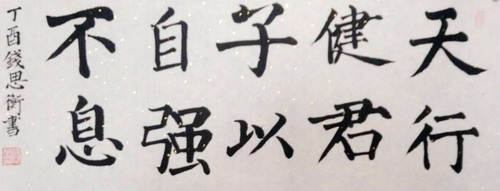 天行
健君
子以
自强
不息
丁酉錢思衡書